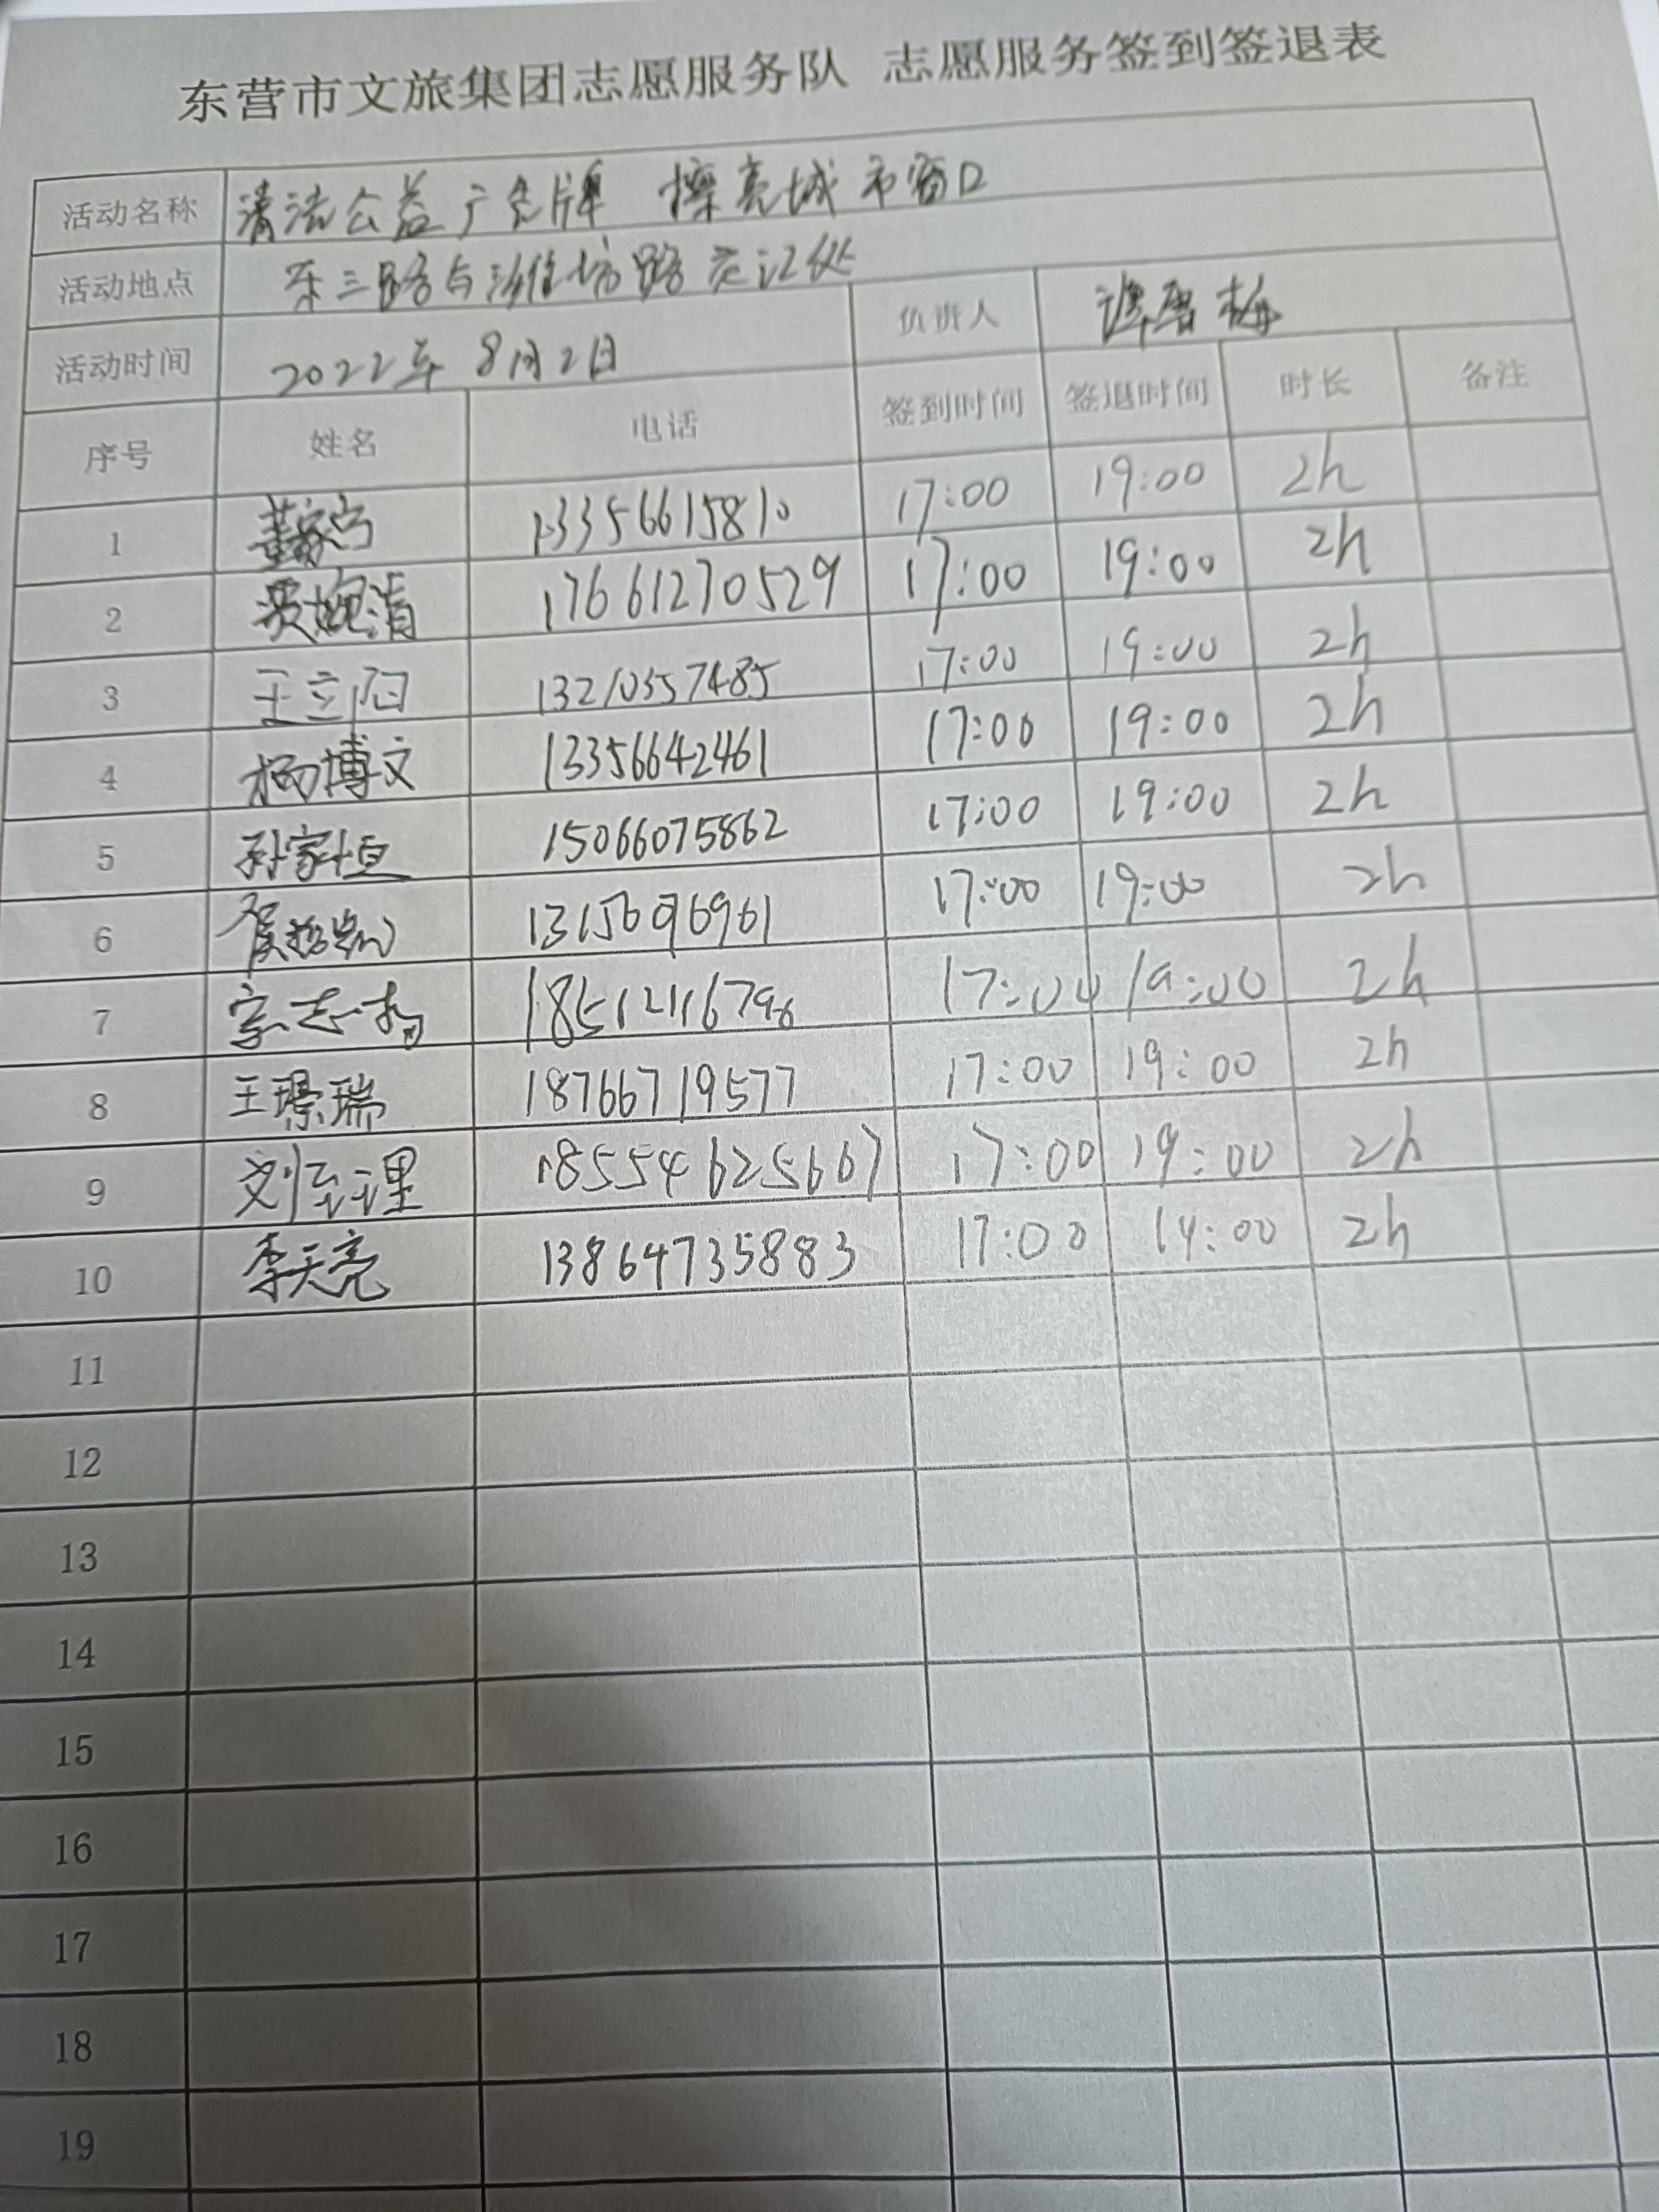 东营市文旅集团志愿服务队 志愿服务签到签退表
活动名称 清洁公益广告牌 擦亮城市窗口
活动地点 东三路与潍坊路交汇处
活动时间 2022年 8月2日 负责人 梅
序号 姓名 电话 签到时间 签退时间 时长 备注
1 董家宁 13356615810 17:00 19:00 2h
2 婉清 17661270529 17:00 19:00 2h
3 王立阳 13210357485 17:00 19:00 2h
4 杨博文 13356642461 17:00 19:00 2h
5 孙家恒 15066075862 17:00 19:00 2h
6 17:00 19:00 2h
7 17:00 19:00 2h
8 王璟瑞 18766719577 17:00 19:00 2h
9 刘至理 18554625667 17:00 19:00 2h
10 李天亮 13864735883 17:00 19:00 2h
11
12
13
14
15
16
17
18
19